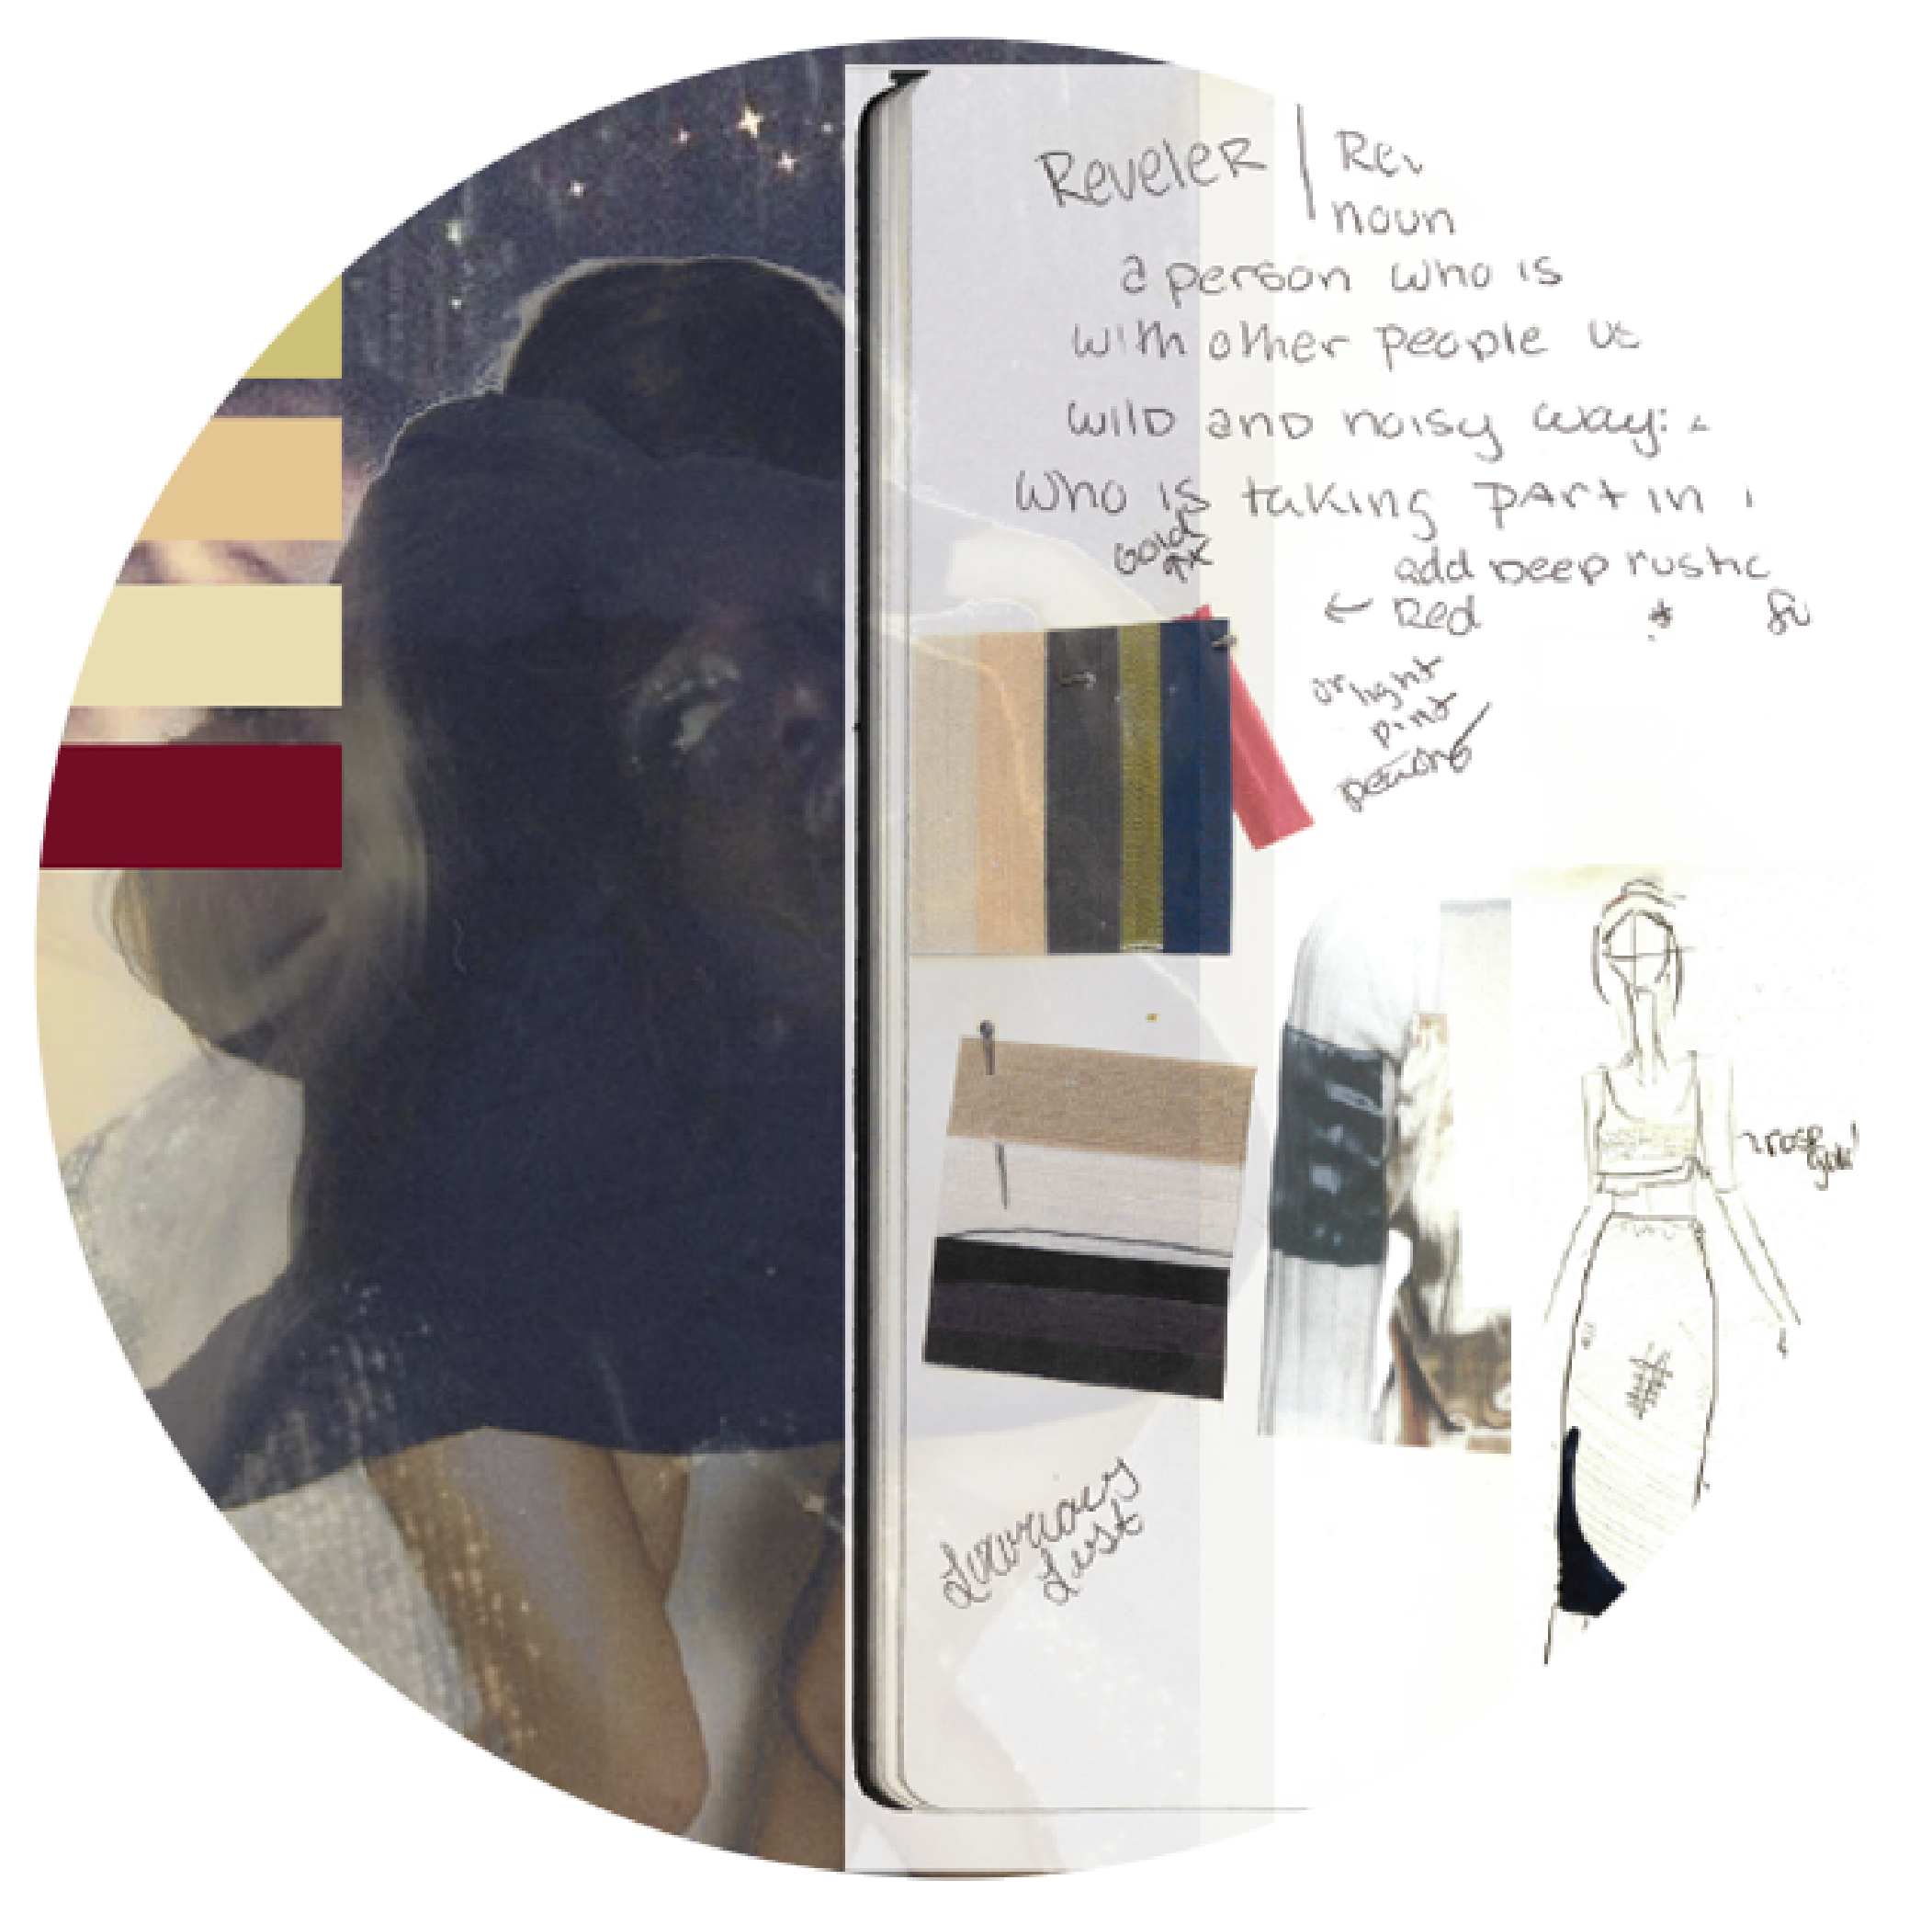 Reveler | Rev
noun
a person who is
with other people
wild and noisy way:
who is taking part in
Gold
add Deep rustic
← Red *
or light
pink
rose
gold
Luxurious
Lust